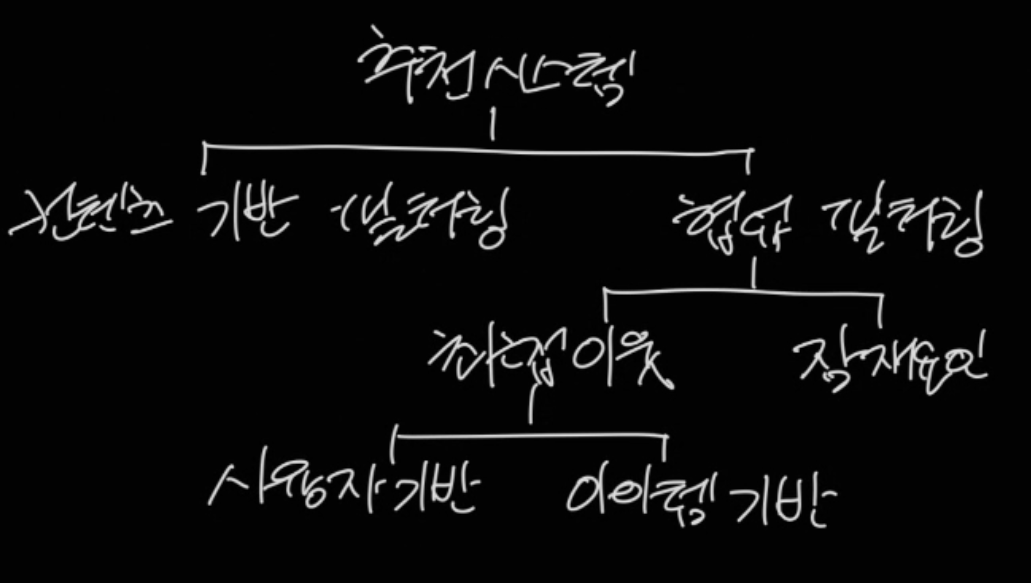 추천시스템
컨텐츠 기반 필터링
협업 필터링
최근접 이웃
잠재요인
사용자 기반
아이템 기반